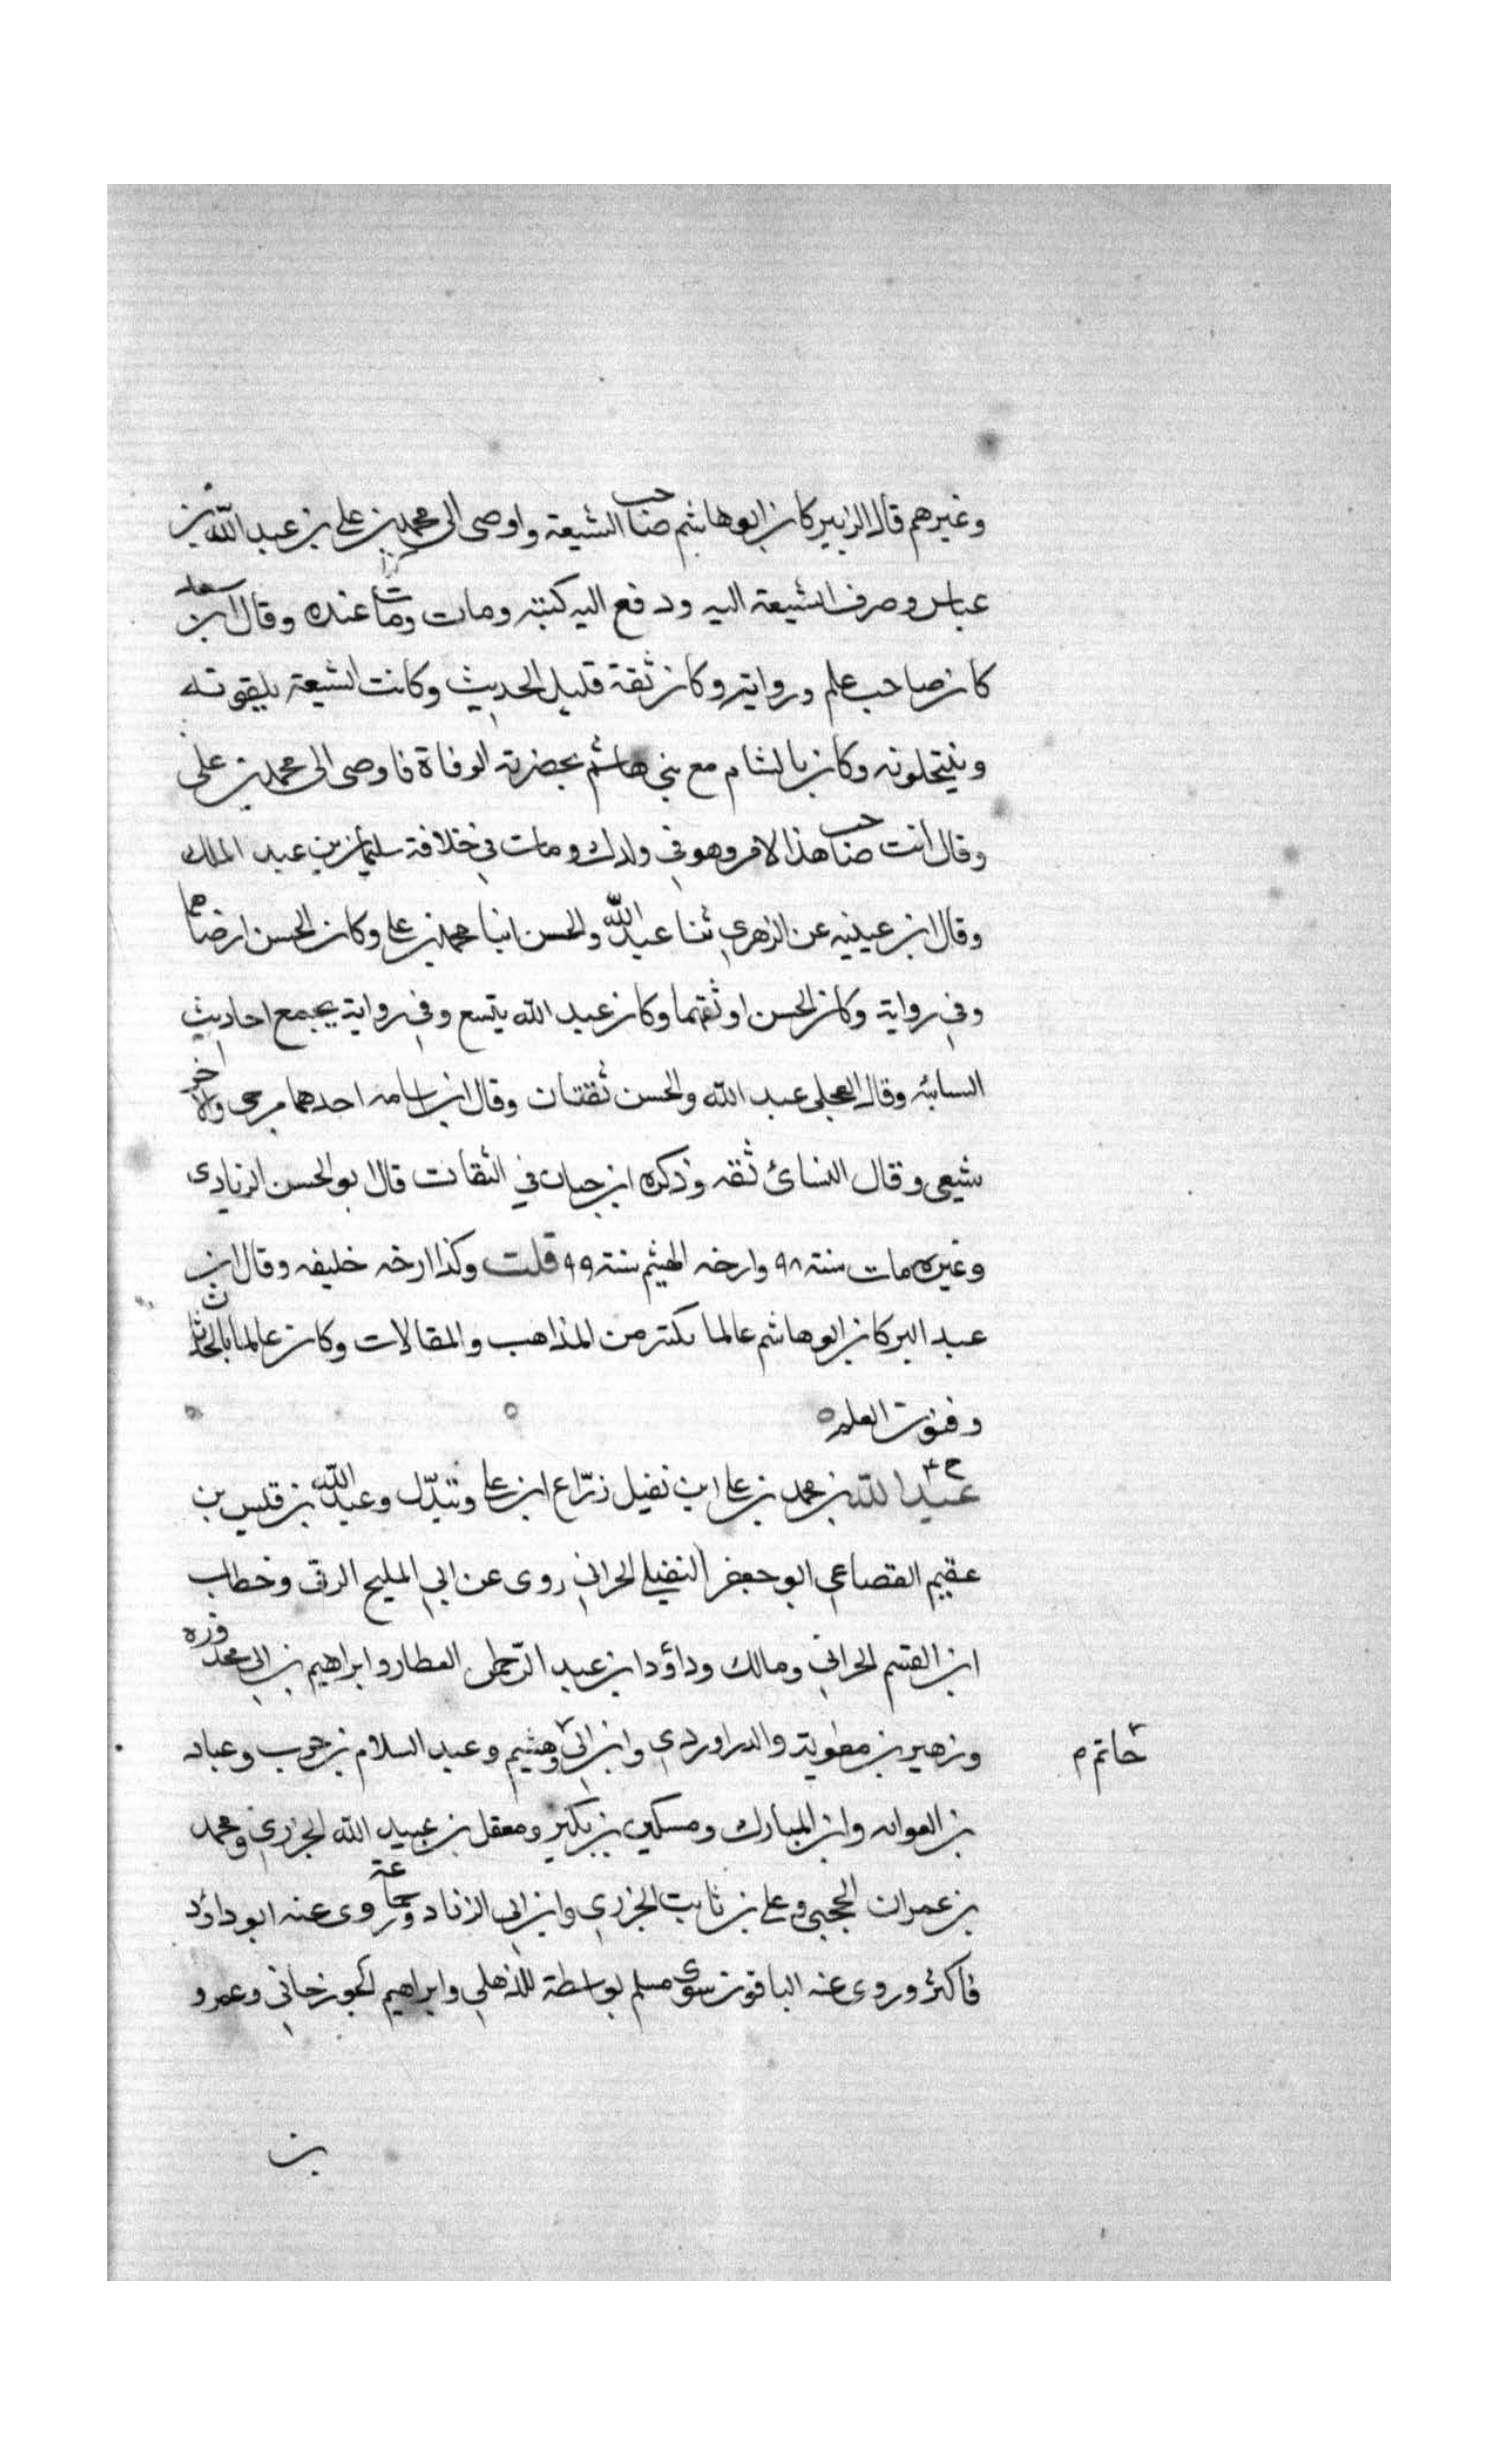 وغيرهم قال الزبير كان ابو هاشم صاحب الشيعة واوصى الى محمد بن علي بن عبد الله بن
عباس وصرف الشيعة اليه ودفع اليه كتبه ومات ومات عنده وقال ابن سعد
كان صاحب علم ورواية وكان ثقة قليل الحديث وكانت الشيعة يلقونه
وينتحلونه وكان بالشام مع بني هاشم بحضرته الوفاة فاوصى الى محمد بن علي
وقال انت صاحب هذا الامر وهو في ولدك ومات في خلافة سليمان بن عبد الملك
وقال ابن عيينه عن الزهري ثنا عبد الله والحسن ابنا محمد بن علي وكان الحسن ارضاهما
وفي رواية وكان الحسن اوثقهما وكان عبد الله يتبع وفي رواية يجمع احاديث
السبائه وقال العجلي عبد الله والحسن ثقتان وقال ابو اسامه احدهما مرجى والاخر
شيعي وقال النسائ ثقه وذكره ابن حبان في الثقات قال ابو الحسن الزيادي
وغيره مات سنة ٩٨ وارخه الهيثم سنة ٩٩ قلت وكذا ارخه خليفه وقال ابن
عبد البر كان ابو هاشم عالما بكثير من المذاهب والمقالات وكان عالما بالحدثان
وفنون العلم
عبد الله بن محمد بن علي ابن نفيل زراع ابن علي وعبد الله بن قيس بن
عصيم القضاعي ابو جعفر النفيلي الحراني روى عن ابي المليح الرقى وخطاب
ابن القسم الحراني ومالك وداؤد ابن عبد الرحمن العطار وابراهيم بن ابي محذوره
وزهير بن معوية والدراوردي وابن ابي وهشيم وعبد السلام بن حرب وعباد
حاتم م
بن العوام وابن المبارك ومسكين بن بكير ومعقل بن عبيد الله الجزري ومحمد
بن عمران الحجبي وعلي بن ثابت الجزري وابن ابي الزناد وجماعة روى عنه ابو داؤد
فاكثر وروى عنه الباقون سوى مسلم بواسطة الذهلي وابراهيم الجوزجاني وعمرو
بن